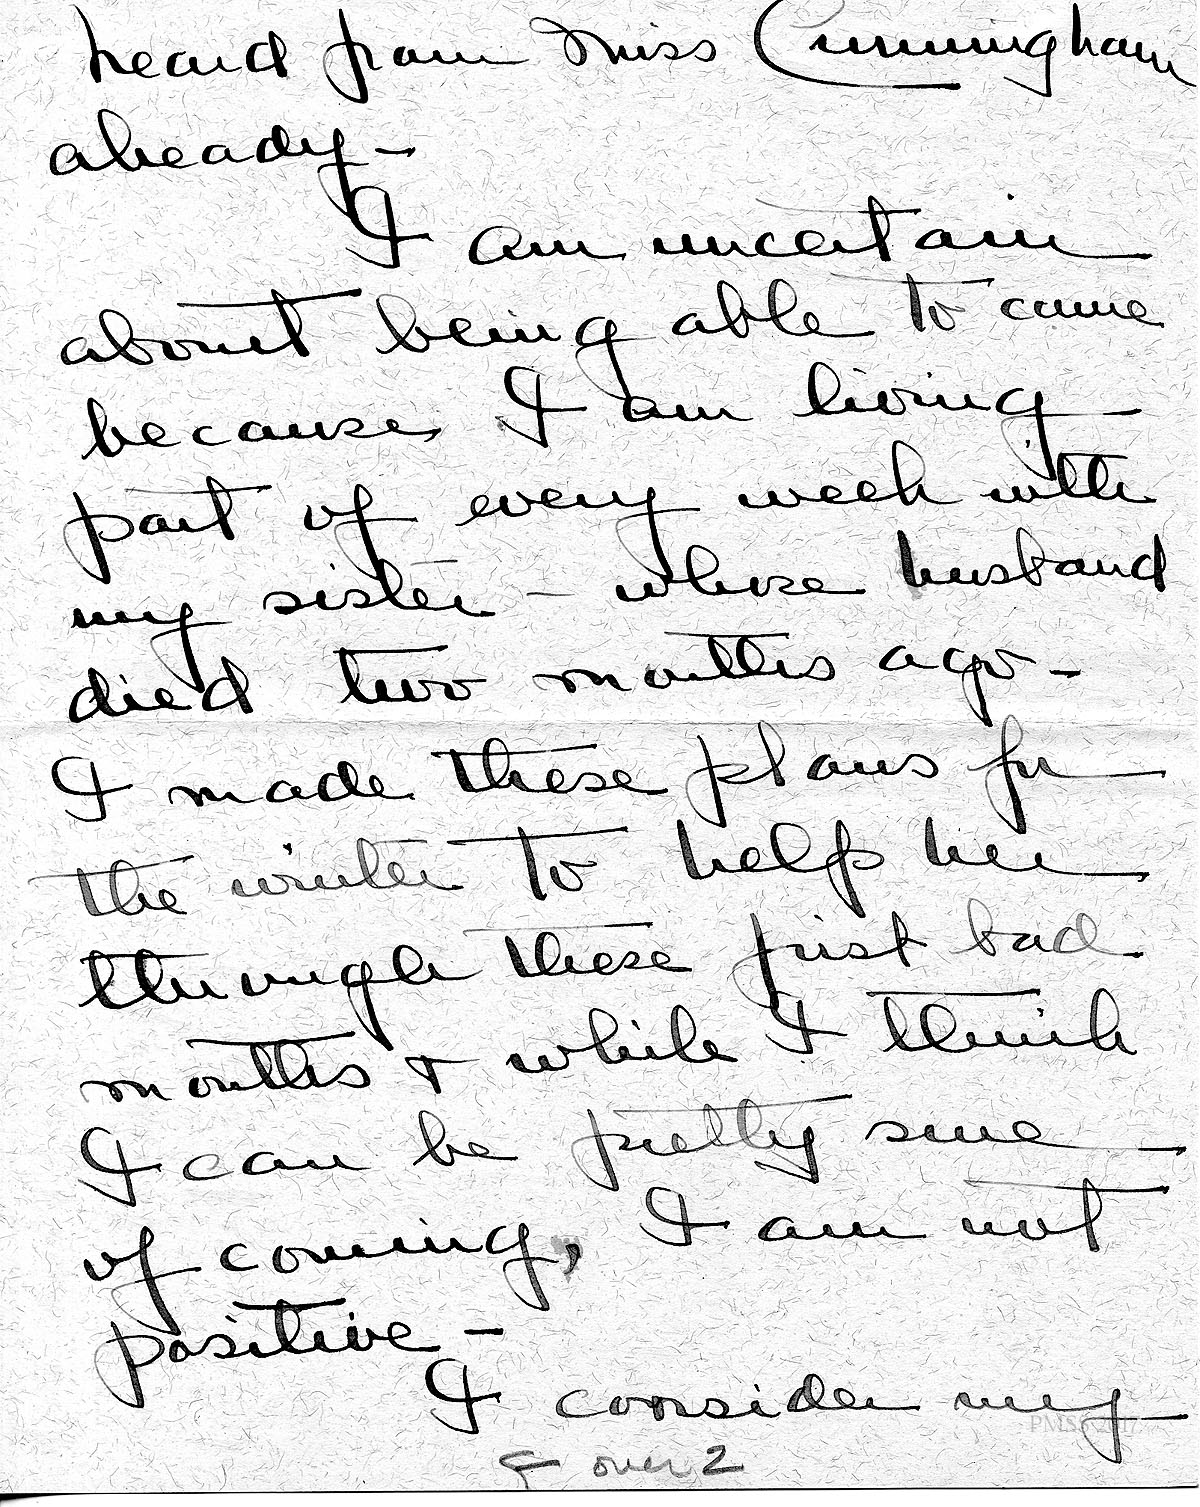 heard from Miss Cunningham
already –
I am uncertain
about being able to come
because I am living
part of every week with
my sister – whose husband
died two months ago –
I made these plans for
the winter to help her
through these first bad
months & while I think
I can be pretty sure
of coming, I am not
positive –
I consider my
PMSS 2017
over 2